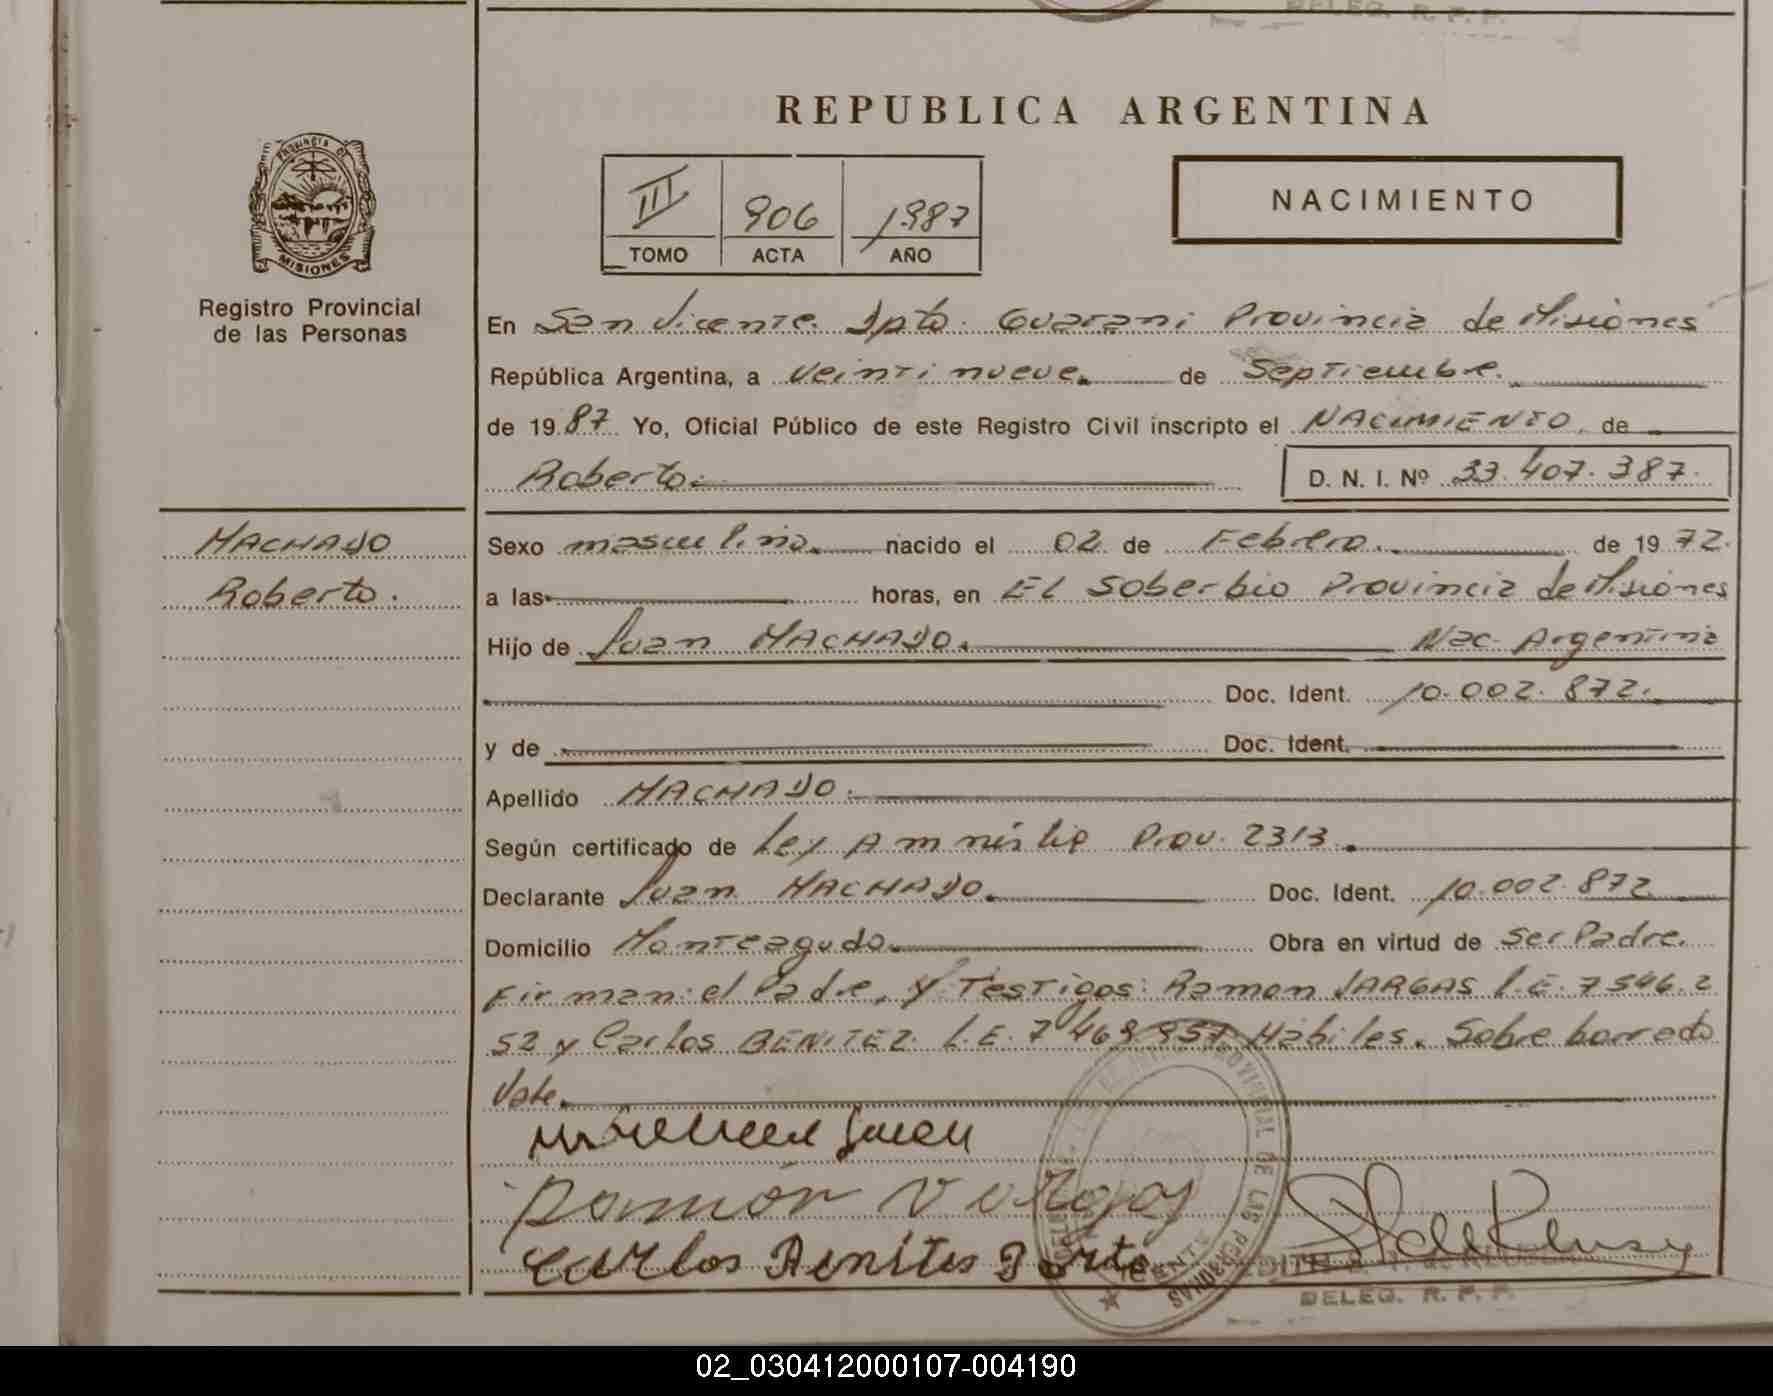 DELEG. R. P. P.
REPUBLICA ARGENTINA
PROVINCIA DE
MISIONES
Registro Provincial
de las Personas
III 906 1987
TOMO ACTA AÑO
NACIMIENTO
En San Vicente. Dpto. Guarani Provincia de Misiones
República Argentina, a veintinueve. de Septiembre.
de 1987 Yo, Oficial Público de este Registro Civil inscripto el NACIMIENTO. de
Roberto.
D. N. I. Nº 33.407.387.
MACHADO
Roberto.
Sexo masculino. nacido el 02 de Febrero. de 1972.
a las horas, en El Soberbio Provincia de Misiones
Hijo de Juan MACHADO. Nac. Argentina
Doc. Ident. 10.002.872.
y de Doc. Ident.
Apellido MACHADO.
Según certificado de Ley Amnistia Prov. 2313.
Declarante Juan MACHADO. Doc. Ident. 10.002.872
Domicilio Monteagudo. Obra en virtud de ser Padre.
Firman: el Padre, y Testigos: Ramon VARGAS L.E. 7546.2
52 y Carlos BENITEZ. L.E. 7 469 957 Habiles. Sobre borrado
Vale.
Juan
Ramón Vargas
Carlos Benites
DELEG. R. P. P.
02_030412000107-004190